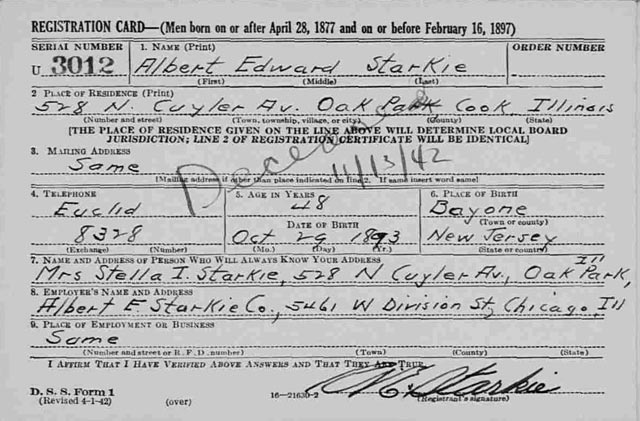 REGISTRATION CARD—(Men born on or after April 28, 1877 and on or before February 16, 1897)
SERIAL NUMBER 1. NAME (Print) ORDER NUMBER
U 3012 Albert Edward Starkie
(First) (Middle) (Last)
2. PLACE OF RESIDENCE (Print)
528 N. Cuyler Av. Oak Park Cook, Illinois
(Number and street) (Town, township, village, or city) (County) (State)
[THE PLACE OF RESIDENCE GIVEN ON THE LINE ABOVE WILL DETERMINE LOCAL BOARD
JURISDICTION; LINE 2 OF REGISTRATION CERTIFICATE WILL BE IDENTICAL]
3. MAILING ADDRESS
Same
Deceased 11/13/42
[Mailing address if other than place indicated on line 2. If same insert word same]
4. TELEPHONE 5. AGE IN YEARS 6. PLACE OF BIRTH
Euclid 48 Bayone
DATE OF BIRTH (Town or county)
8328 Oct 29 1893 New Jersey
(Exchange) (Number) (Mo.) (Day) (Yr.) (State or country)
7. NAME AND ADDRESS OF PERSON WHO WILL ALWAYS KNOW YOUR ADDRESS
Mrs Stella I. Starkie, 528 N Cuyler Av., Oak Park, Ill
8. EMPLOYER'S NAME AND ADDRESS
Albert E. Starkie Co., 5461 W Division St, Chicago, Ill
9. PLACE OF EMPLOYMENT OR BUSINESS
Same
(Number and street or R. F. D. number) (Town) (County) (State)
I AFFIRM THAT I HAVE VERIFIED ABOVE ANSWERS AND THAT THEY ARE TRUE.
D. S. S. Form 1
(Revised 4-1-42) (over) 16—21630-2 Starkie
(Registrant's signature)